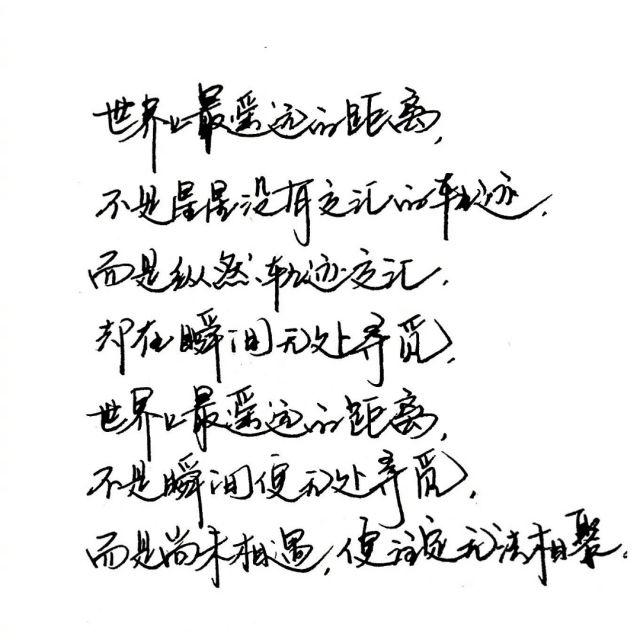 世界上最遥远的距离,
不是星星没有交汇的轨迹,
而是纵然轨迹交汇,
却在瞬间无处寻觅,
世界上最遥远的距离,
不是瞬间便无处寻觅,
而是尚未相遇,便注定无法相聚。